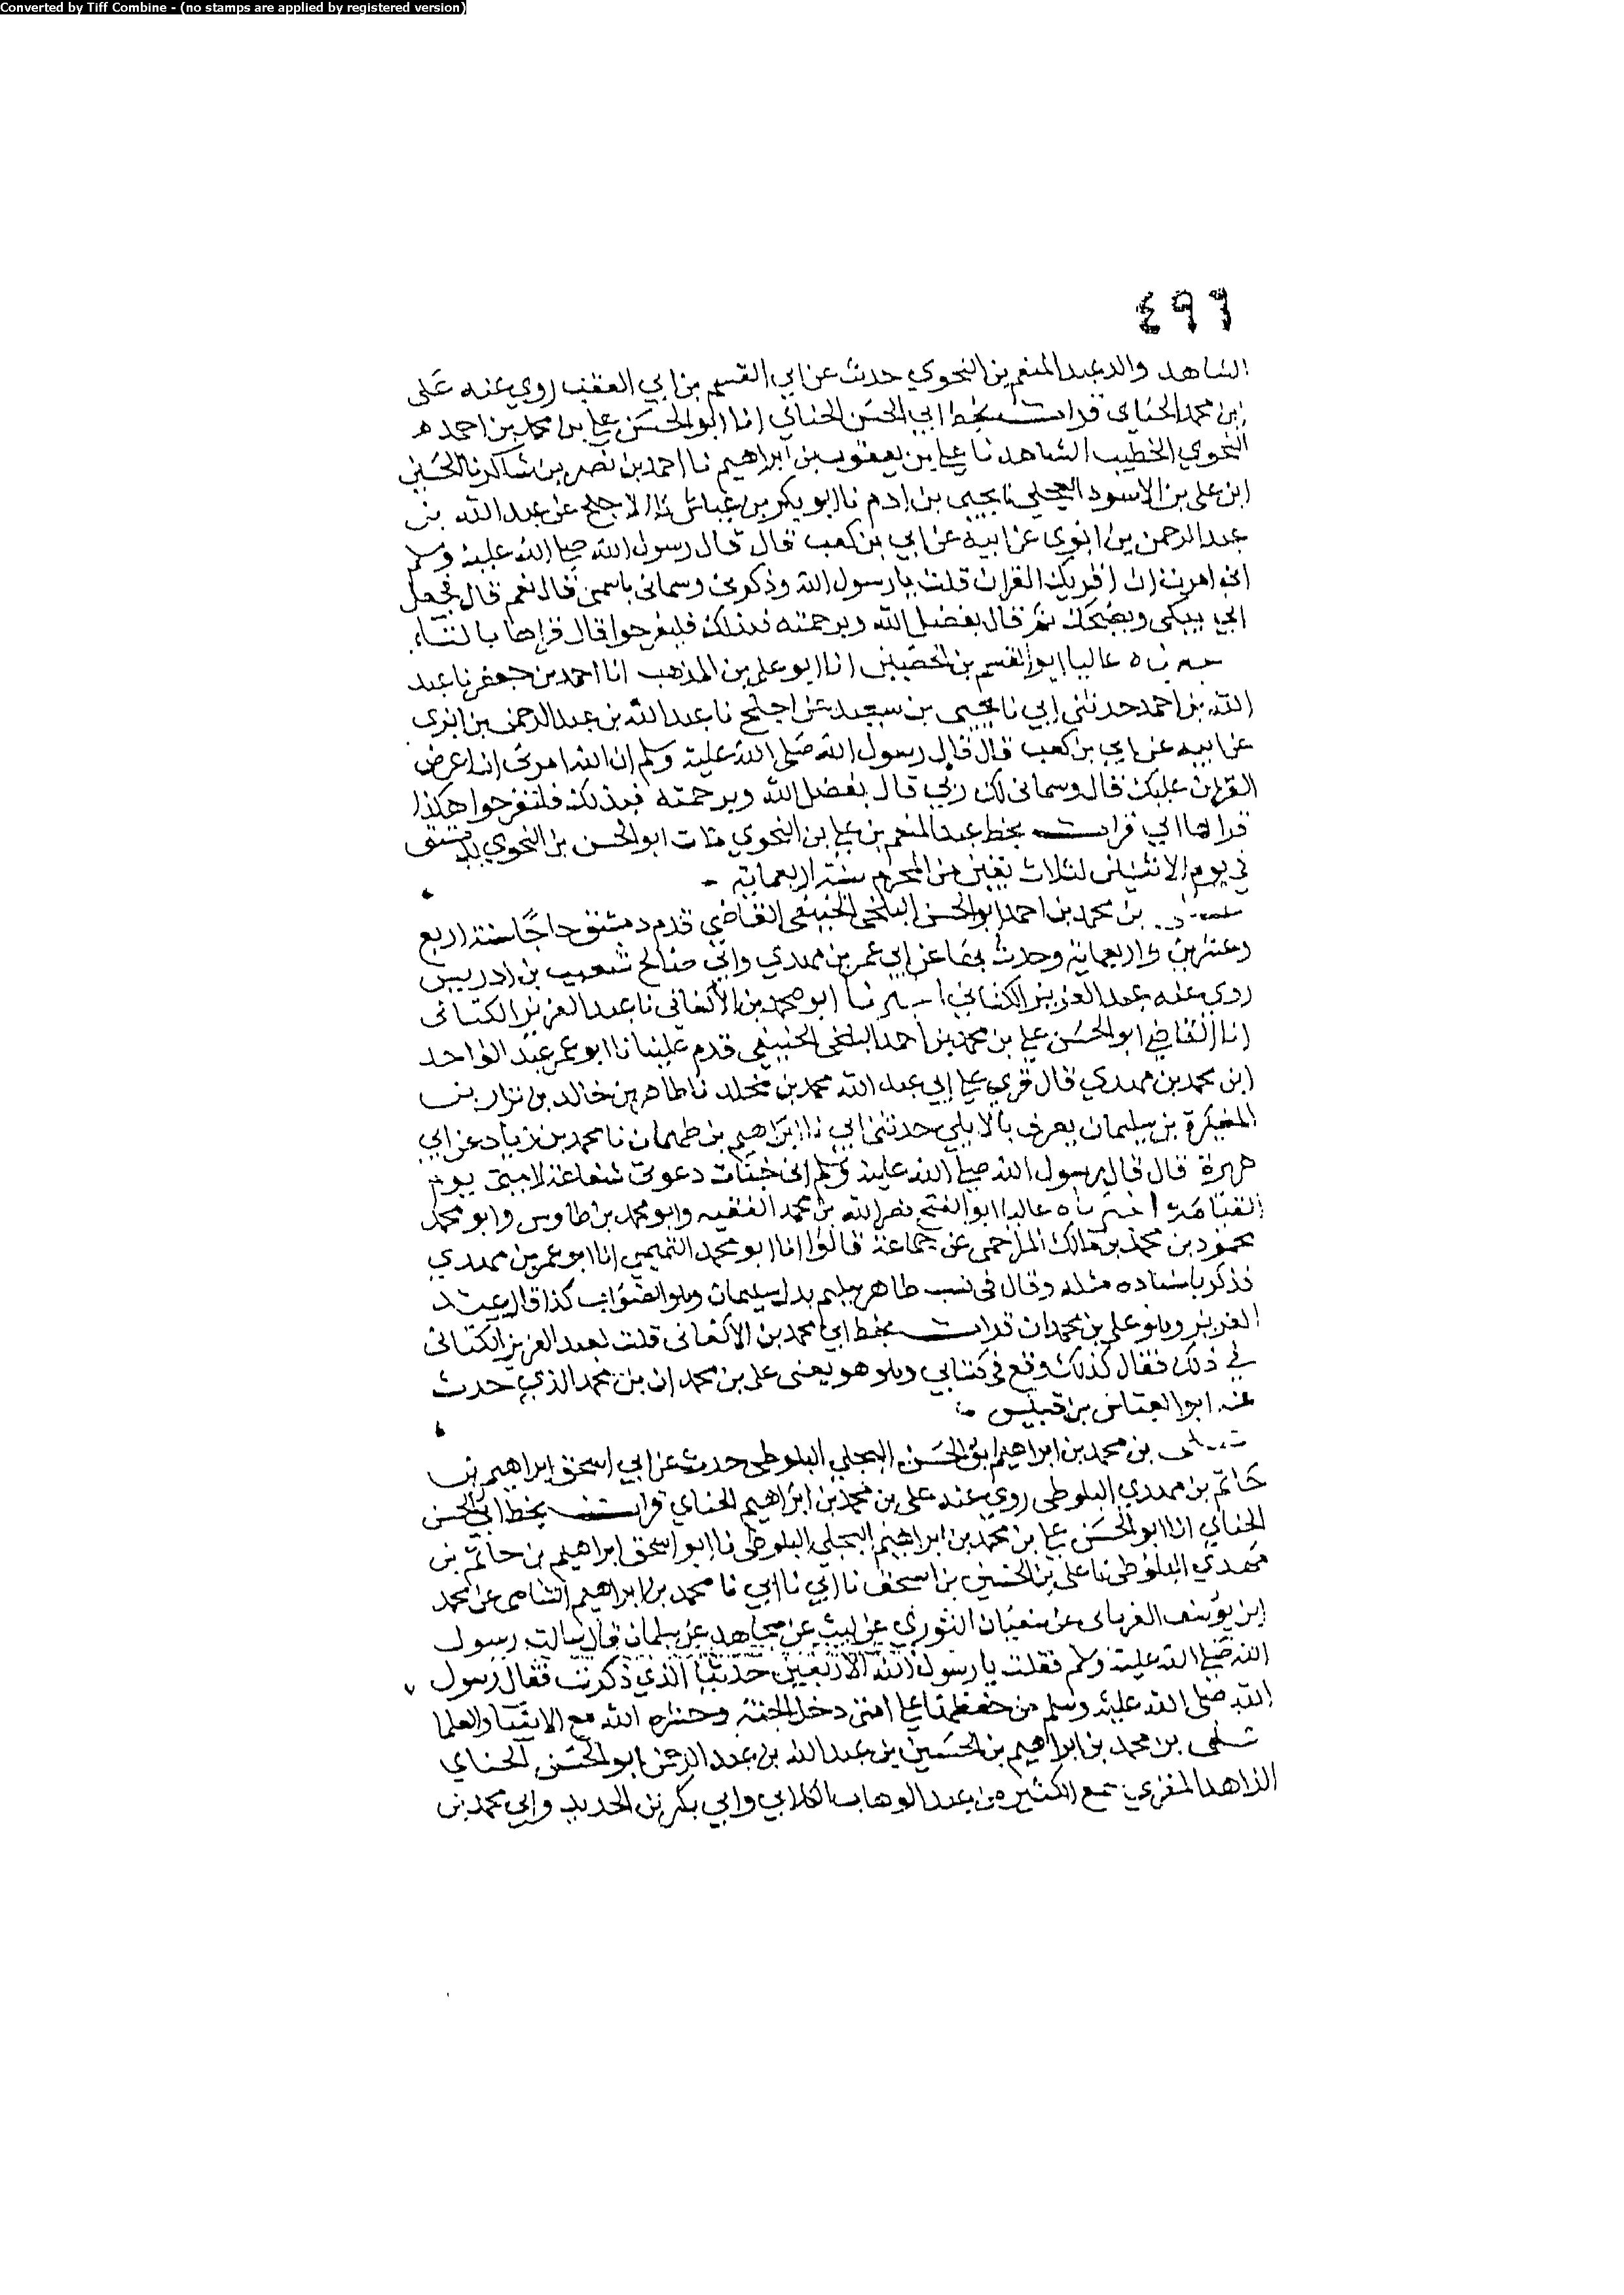 Converted by Tiff Combine - (no stamps are applied by registered version)
٤٩٩
الشاهد والد عبد المنعم بن النحوي حدث عن ابي القسم بن ابي العقب روي عنه على
بن محمد الحناي قرات بخط ابي الحسن الحناي انا ابو الحسن علي بن محمد بن احمد
النحوي الخطيب الشاهد نا علي بن يعقوب بن ابراهيم نا احمد بن نصر بن شاكر نا الحسين
ابن علي بن الاسود العجلي نا يحيى بن ادم نا ابو بكر بن عياش نا الاجلح عن عبد الله بن
عبد الرحمن بن ابزى عن ابيه عن ابي بن كعب قال قال رسول الله صلى الله عليه وسلم
اني امرت ان اقريك القران قلت يا رسول الله وذكرت وسماني باسمي قال نعم قال فجعل
ابي يبكي ويضحك ثم قال بفضل الله وبرحمته فبذلك فليفرحوا قال قراها بالتاء
عاليا ابو القسم بن الحصين انا ابو علي بن المذهب انا احمد بن جعفر نا عبد
الله بن احمد حدثني ابي نا يحيى بن سعيد عن اجلح نا عبد الله بن عبد الرحمن بن ابزى
عن ابيه عن ابي بن كعب قال قال رسول الله صلى الله عليه وسلم ان الله امرني ان اعرض
القران عليك قال وسماني لك ربي قال بفضل الله وبرحمته فبذلك فلتفرحوا هكذا
قراها ابي قرات بخط عبد المنعم بن علي بن النحوي مات ابو الحسن بن النحوي بدمشق
في يوم الاثنين لثلاث بقين من المحرم سنة اربعماية
بن محمد بن احمد ابو الحسن البلخي الحنيفي القاضي قدم دمشق حاجا سنة اربع
وعشرين واربعماية وحدث بها عن ابي عمر بن مهدي وابي صالح شعيب بن ادريس
روي عنه عبد العزيز الكتاني اخبرنا ابو محمد بن الاكفاني نا عبد العزيز الكتاني
انا القاضي ابو الحسن علي بن محمد بن احمد البلخي الحنيفي قدم علينا نا ابو عمر عبد الواحد
ابن محمد بن مهدي قال قري علي ابي عبد الله محمد بن مخلد نا طاهر بن خالد بن نزار بن
المغيرة بن سليمان يعرف بالايلي حدثني ابي نا ابراهيم بن طهمان نا محمد بن زياد عن ابي
هريرة قال قال رسول الله صلى الله عليه وسلم اني خبات دعوتي شفاعة لامتي يوم
القيامة اخبرناه عاليا ابو الفتح نصر الله بن محمد الفقيه وابو محمد بن طاوس وابو محمد
محمود بن محمد بن مالك المزاحمي عن جماعة قالوا انا ابو محمد التميمي انا ابو عمر بن مهدي
فذكر باسناده مثله وقال في نسب طاهر سليم بدل سليمان وهو الصواب كذا قال عبد
العزيز وهو علي بن محمدان قرات بخط ابي محمد بن الاكفاني قلت لعبد العزيز الكتاني
في ذلك فقال كذلك وقع في كتابي وهو هو يعني علي بن محمدان بن محمد الذي حدث
عنه ابو العباس بن قبيس
علي بن محمد بن ابراهيم ابو الحسن البجلي البلوطي حدث عن ابي اسحق ابراهيم بن
حاتم بن مهدي البلوطي روي عنه علي بن محمد بن ابراهيم الحناي قرات بخط ابي الحسن
الحناي انا ابو الحسن علي بن محمد بن ابراهيم البجلي البلوطي نا ابو اسحق ابراهيم بن حاتم بن
مهدي البلوطي نا علي بن الحسين بن اسحق نا ابي نا ابي نا محمد بن ابراهيم الشامي عن محمد
ابن يوسف الفريابي عن سفيان الثوري عن ليث عن مجاهد عن سلمان قال سالت رسول
الله صلى الله عليه وسلم فقلت يا رسول الله الاربعين حديثا الذي ذكرت فقال رسول
الله صلى الله عليه وسلم من حفظها علي امتي دخل الجنة وحشره الله مع الانبيا والعلما
علي بن محمد بن ابراهيم بن الحسين بن عبد الله بن عبد الرحمن ابو الحسن الحناي
الزاهد المقري سمع الكثير من عبد الوهاب الكلابي وابي بكر بن الحديد وابي محمد بن